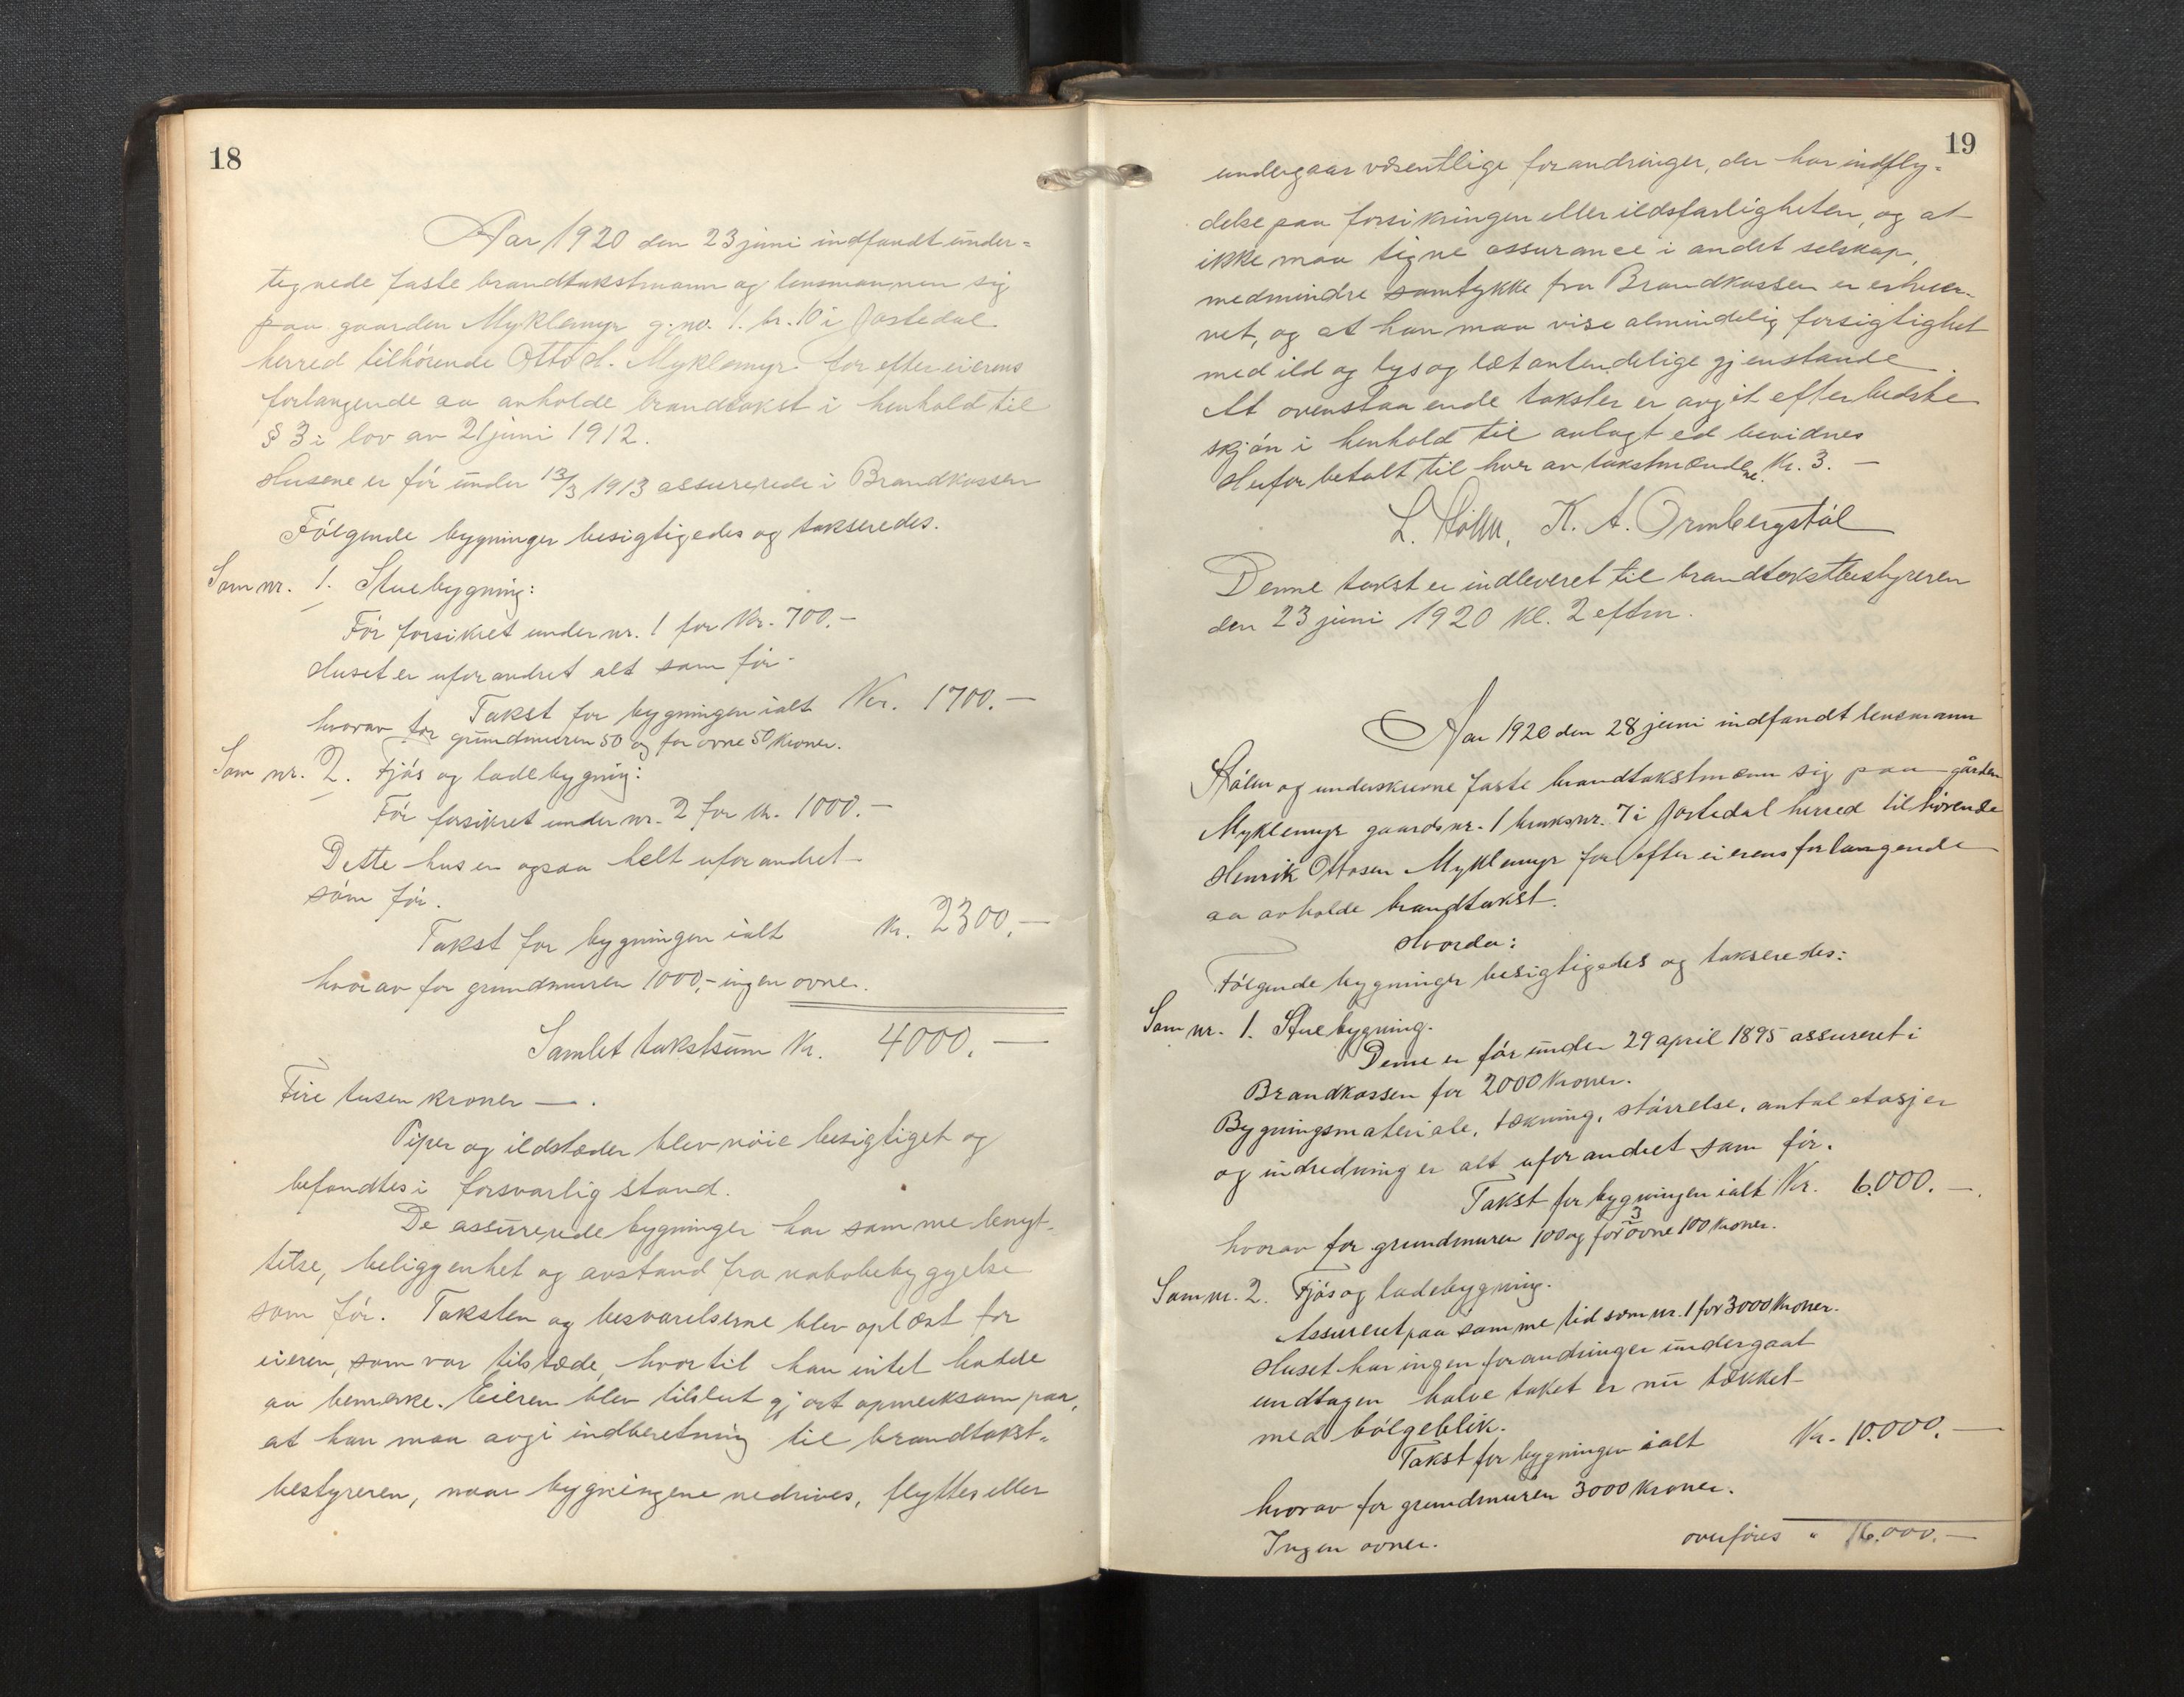 18
Aar 1920 den 23 juni indfandt under-
tegnede faste brandtakstmann og lensmannen sig
paa gaarden Myklemyr g.no. 1. br. 10 i Jostedal
herred tilhörende Otto H. Myklemyr for efter eierens
forlangende aa avholde brandtakst i henhold til
§ 3 i lov av 21 juni 1912.
Husene er för under 13/3 1913 assurerede i Brandkassen
Fölgende bygninger besigtigedes og takseredes.
Som nr. 1. Stuebygning:
För forsikret under nr. 1 for Kr. 700.-
Huset er uforandret alt som för.
Takst for bygningen ialt Kr. 1700.-
hvorav for grundmuren 50 og for ovne 50 kroner.
Som nr. 2. Fjös og ladebygning:
För forsikret under nr. 2 for Kr. 1000.-
Dette hus er ogsaa helt uforandret
som för.
Takst for bygningen ialt Kr. 2300.-
hvorav for grundmuren 1000,- ingen ovner.
Samlet takstsum Kr. 4000.-
Fire tusen kroner —.
Piper og ildstæder blev nöie besigtiget og
befandtes i forsvarlig stand.
De assurerede bygninger har samme benyt-
telse, beliggenhet og avstand fra nabobebyggelse
som för. Taksten og besvarelserne blev oplæst for
eieren, som var tilstæde, hvortil han intet hadde
aa bemerke. Eieren blev tilslut gjort opmerksom paa,
at han maa avgi indberetning til brandtakst-
bestyreren, naar bygningene nedrives, flyttes eller
19
undergaar væsentlige forandringer, der har indfly-
delse paa forsikringen eller ildsfarligheten, og at
ikke maa tegne assurance i andet selskap,
medmindre samtykke fra Brandkassen er erhver-
vet, og at han maa vise almindelig forsigtighet
med ild og lys og letantendelige gjenstande.
At ovenstaaende takster er avgit efter bedste
skjön i henhold til avlagt ed bevidnes
Herfor betalt til hver av takstmændene Kr. 3.-
K. A. Ormbergstöl
Denne takst er indleveret til brandtakstbestyreren
den 23 juni 1920 kl. 2 eftm.
Aar 1920 den 28 juni indfandt lensmann
og underskrevne faste brandtakstmænn sig paa gården
Myklemyr gaardsnr. 1 bruksnr. 7 i Jostedal herred tilhörende
Henrik Ottosen Myklemyr for efter eierens forlangende
aa avholde brandtakst.
Hvorda:
Fölgende bygninger besigtigedes og takseredes:
Som nr. 1. Stuebygning.
Denne er för under 29 april 1895 assureret i
Brandkassen for 2000 kroner.
Bygningsmateriale, tækning, störrelse, antal etasjer
og indredning er alt uforandret som för.
Takst for bygningen ialt Kr. 6.000.-
hvorav for grundmuren 100 og for 3 ovne 100 kroner.
Som nr. 2. Fjös og ladebygning.
Assureret paa samme tid som nr. 1 for 3000 kroner.
Huset har ingen forandringer undergaat
undtagen halve taket er nu tækket
med bölgeblik.
Takst for bygningen ialt Kr. 10.000.-
hvorav for grundmuren 3000 kroner.
Ingen ovner. overföres " 16.000.-